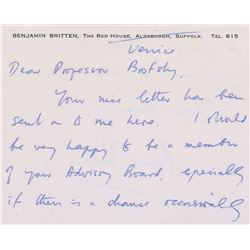 BENJAMIN BRITTEN, THE RED HOUSE, ALDEBURGH, SUFFOLK. TEL 615
Venice.
Dear Professor
Your nice letter has been
sent on to me here. I should
be very happy to be a member
of your Advisory Board, especially
if there is a chance occasionally